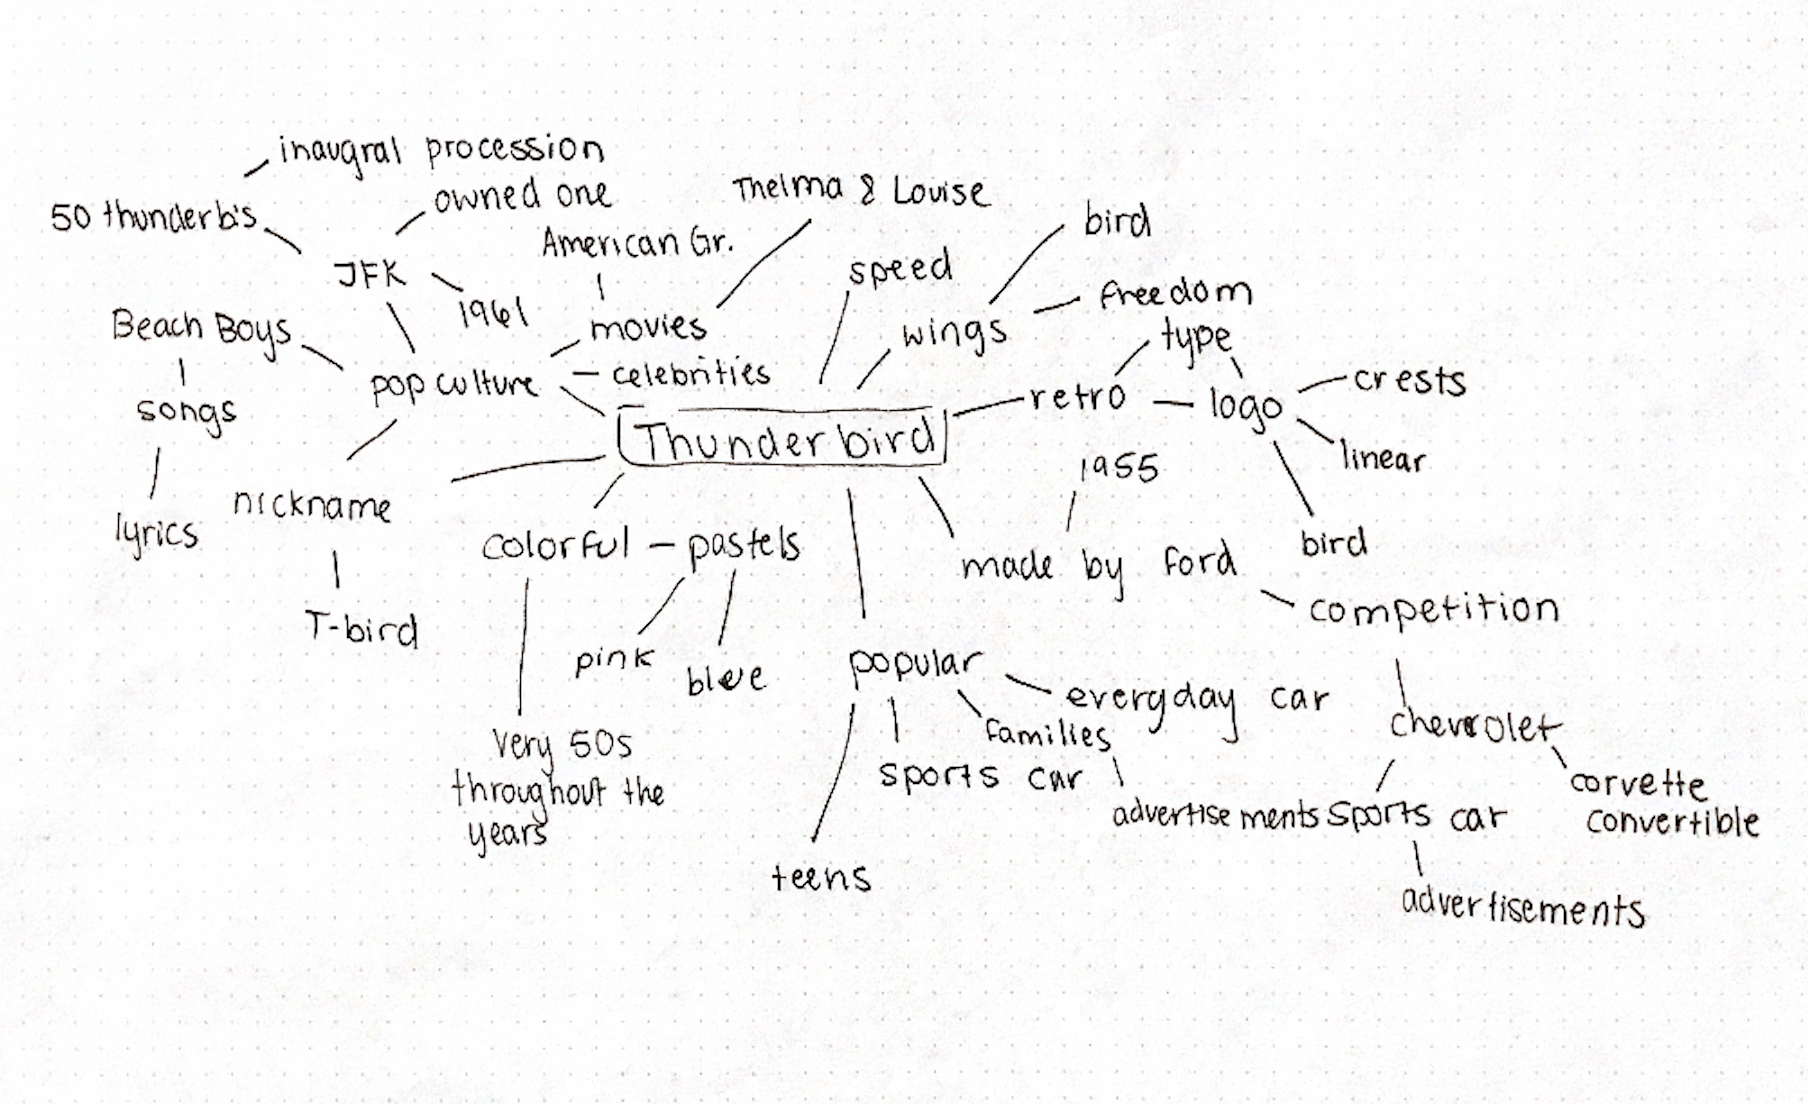 inaugral procession
owned one
50 thunderb's
JFK
1961
American Gr.
Thelma & Louise
movies
celebrities
Beach Boys
songs
lyrics
pop culture
nickname
T-bird
speed
wings
bird
freedom
type
retro
logo
crests
linear
bird
Thunderbird
colorful
pastels
pink
blue
very 50s
throughout the
years
1955
made by ford
competition
chevrolet
corvette
convertible
sports car
advertisements
popular
everyday car
families
advertisements
sports car
teens